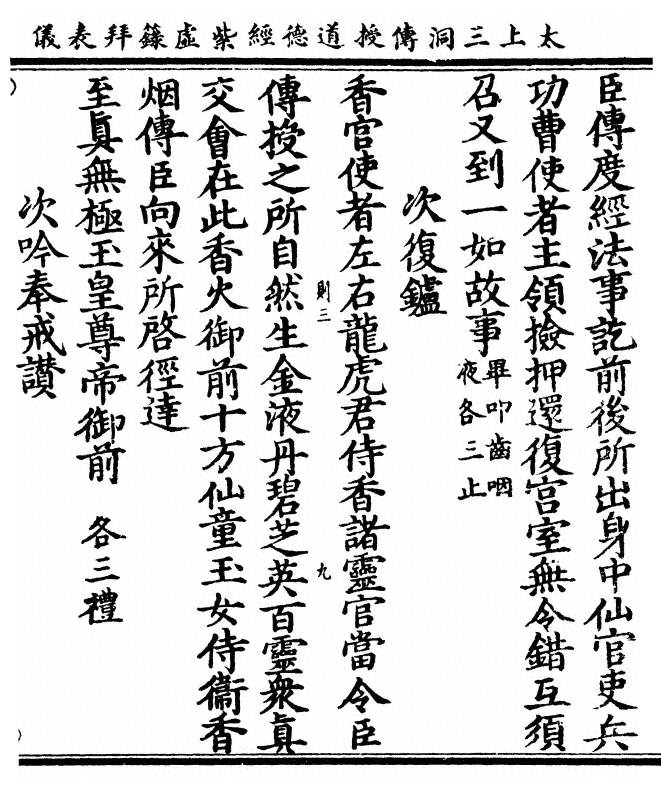 太上三洞傳授道德經紫虛籙拜表儀
臣傳度經法事訖前後所出身中仙官吏兵
功曹使者主領撿押還復宮室無令錯互須
召又到一如故事畢叩齒咽
液各三止
次復鑪
香官使者左右龍虎君侍香諸靈官當令臣
則三
九
傳授之所自然生金液丹碧芝英百靈衆眞
交會在此香火御前十方仙童玉女侍衞香
烟傳臣向來所啓徑達
至眞無極玉皇尊帝御前 各三禮
次吟奉戒讚